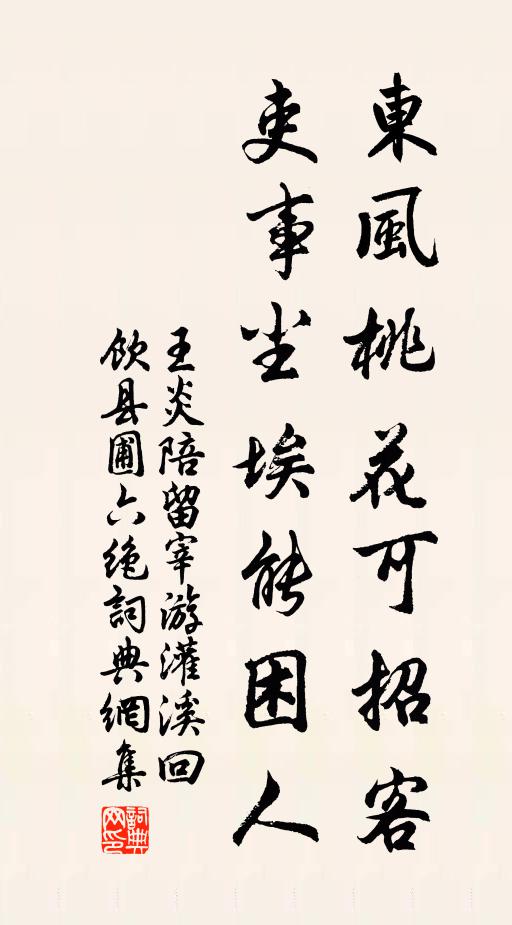 東風桃花可招客
吏事尘埃能困人
王炎陪留宰游灌溪回
飲县圃六绝詞典網集
詞典网印